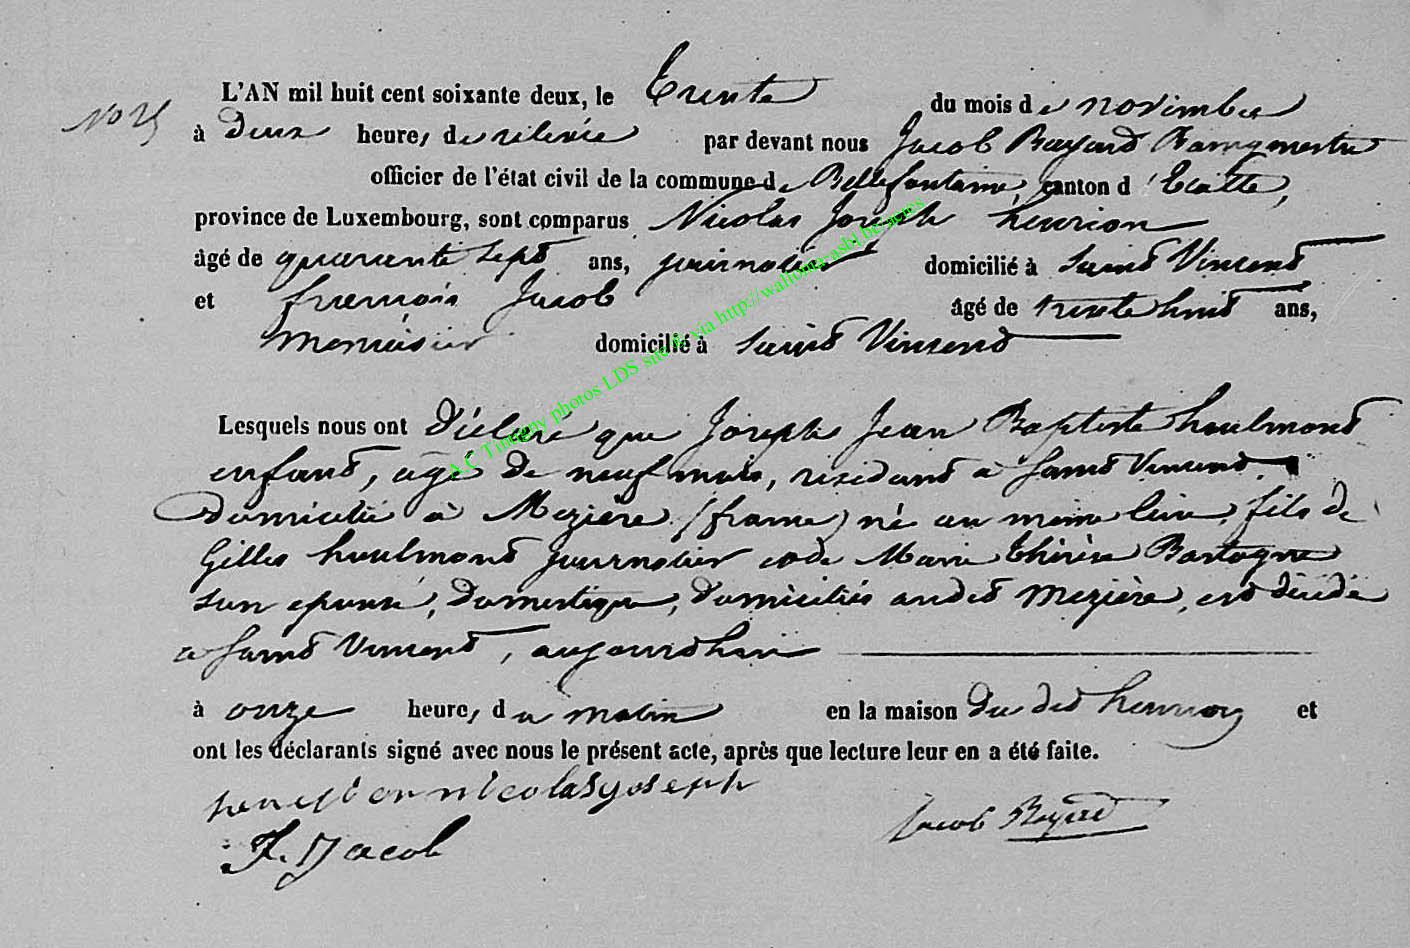 L'AN mil huit cent soixante deux, le Trente du mois de novembre
No 25
à Deux heures de relevée par devant nous Jacob Bayard Bourgmestre
officier de l'état civil de la commune de Bellefontaine, canton d'Etalle,
province de Luxembourg, sont comparus Nicolas Joseph henrion
âgé de quarante sept ans, journalier domicilié à Saint Vincent
et francois Jacob âgé de trente huit ans,
Menuisier domicilié à Saint Vincent
Lesquels nous ont Déclaré que Joseph Jean Baptiste heulmont
enfant, agé de neuf mois, residant a Saint Vincent
Domicilié à Mezière (france) né au meme lieu, fils de
Gilles heulmont journalier et de Marie thérèse Bastogne
son epouse, Domestique, Domiciliés audit Mezière, est décédé
a Saint Vincent, aujourdhui
à onze heures du matin en la maison du dit henrion et
ont les déclarants signé avec nous le présent acte, après que lecture leur en a été faite.
henrion nicolas joseph
Jacob Bayard
F. Jacob
A.C Tintigny photos LDS site & via http://wallonia-asbl.be/actes